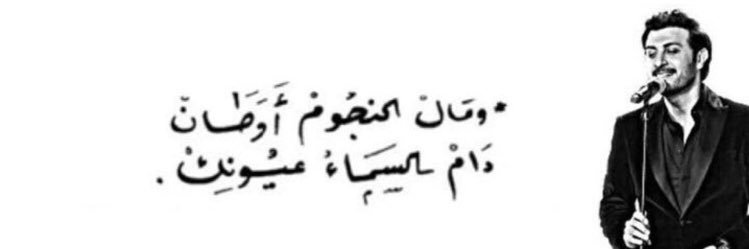 *وقالْ النجُومْ أَوَطَانْ
دَامْ السِمَاءْ عيُونِكْ .